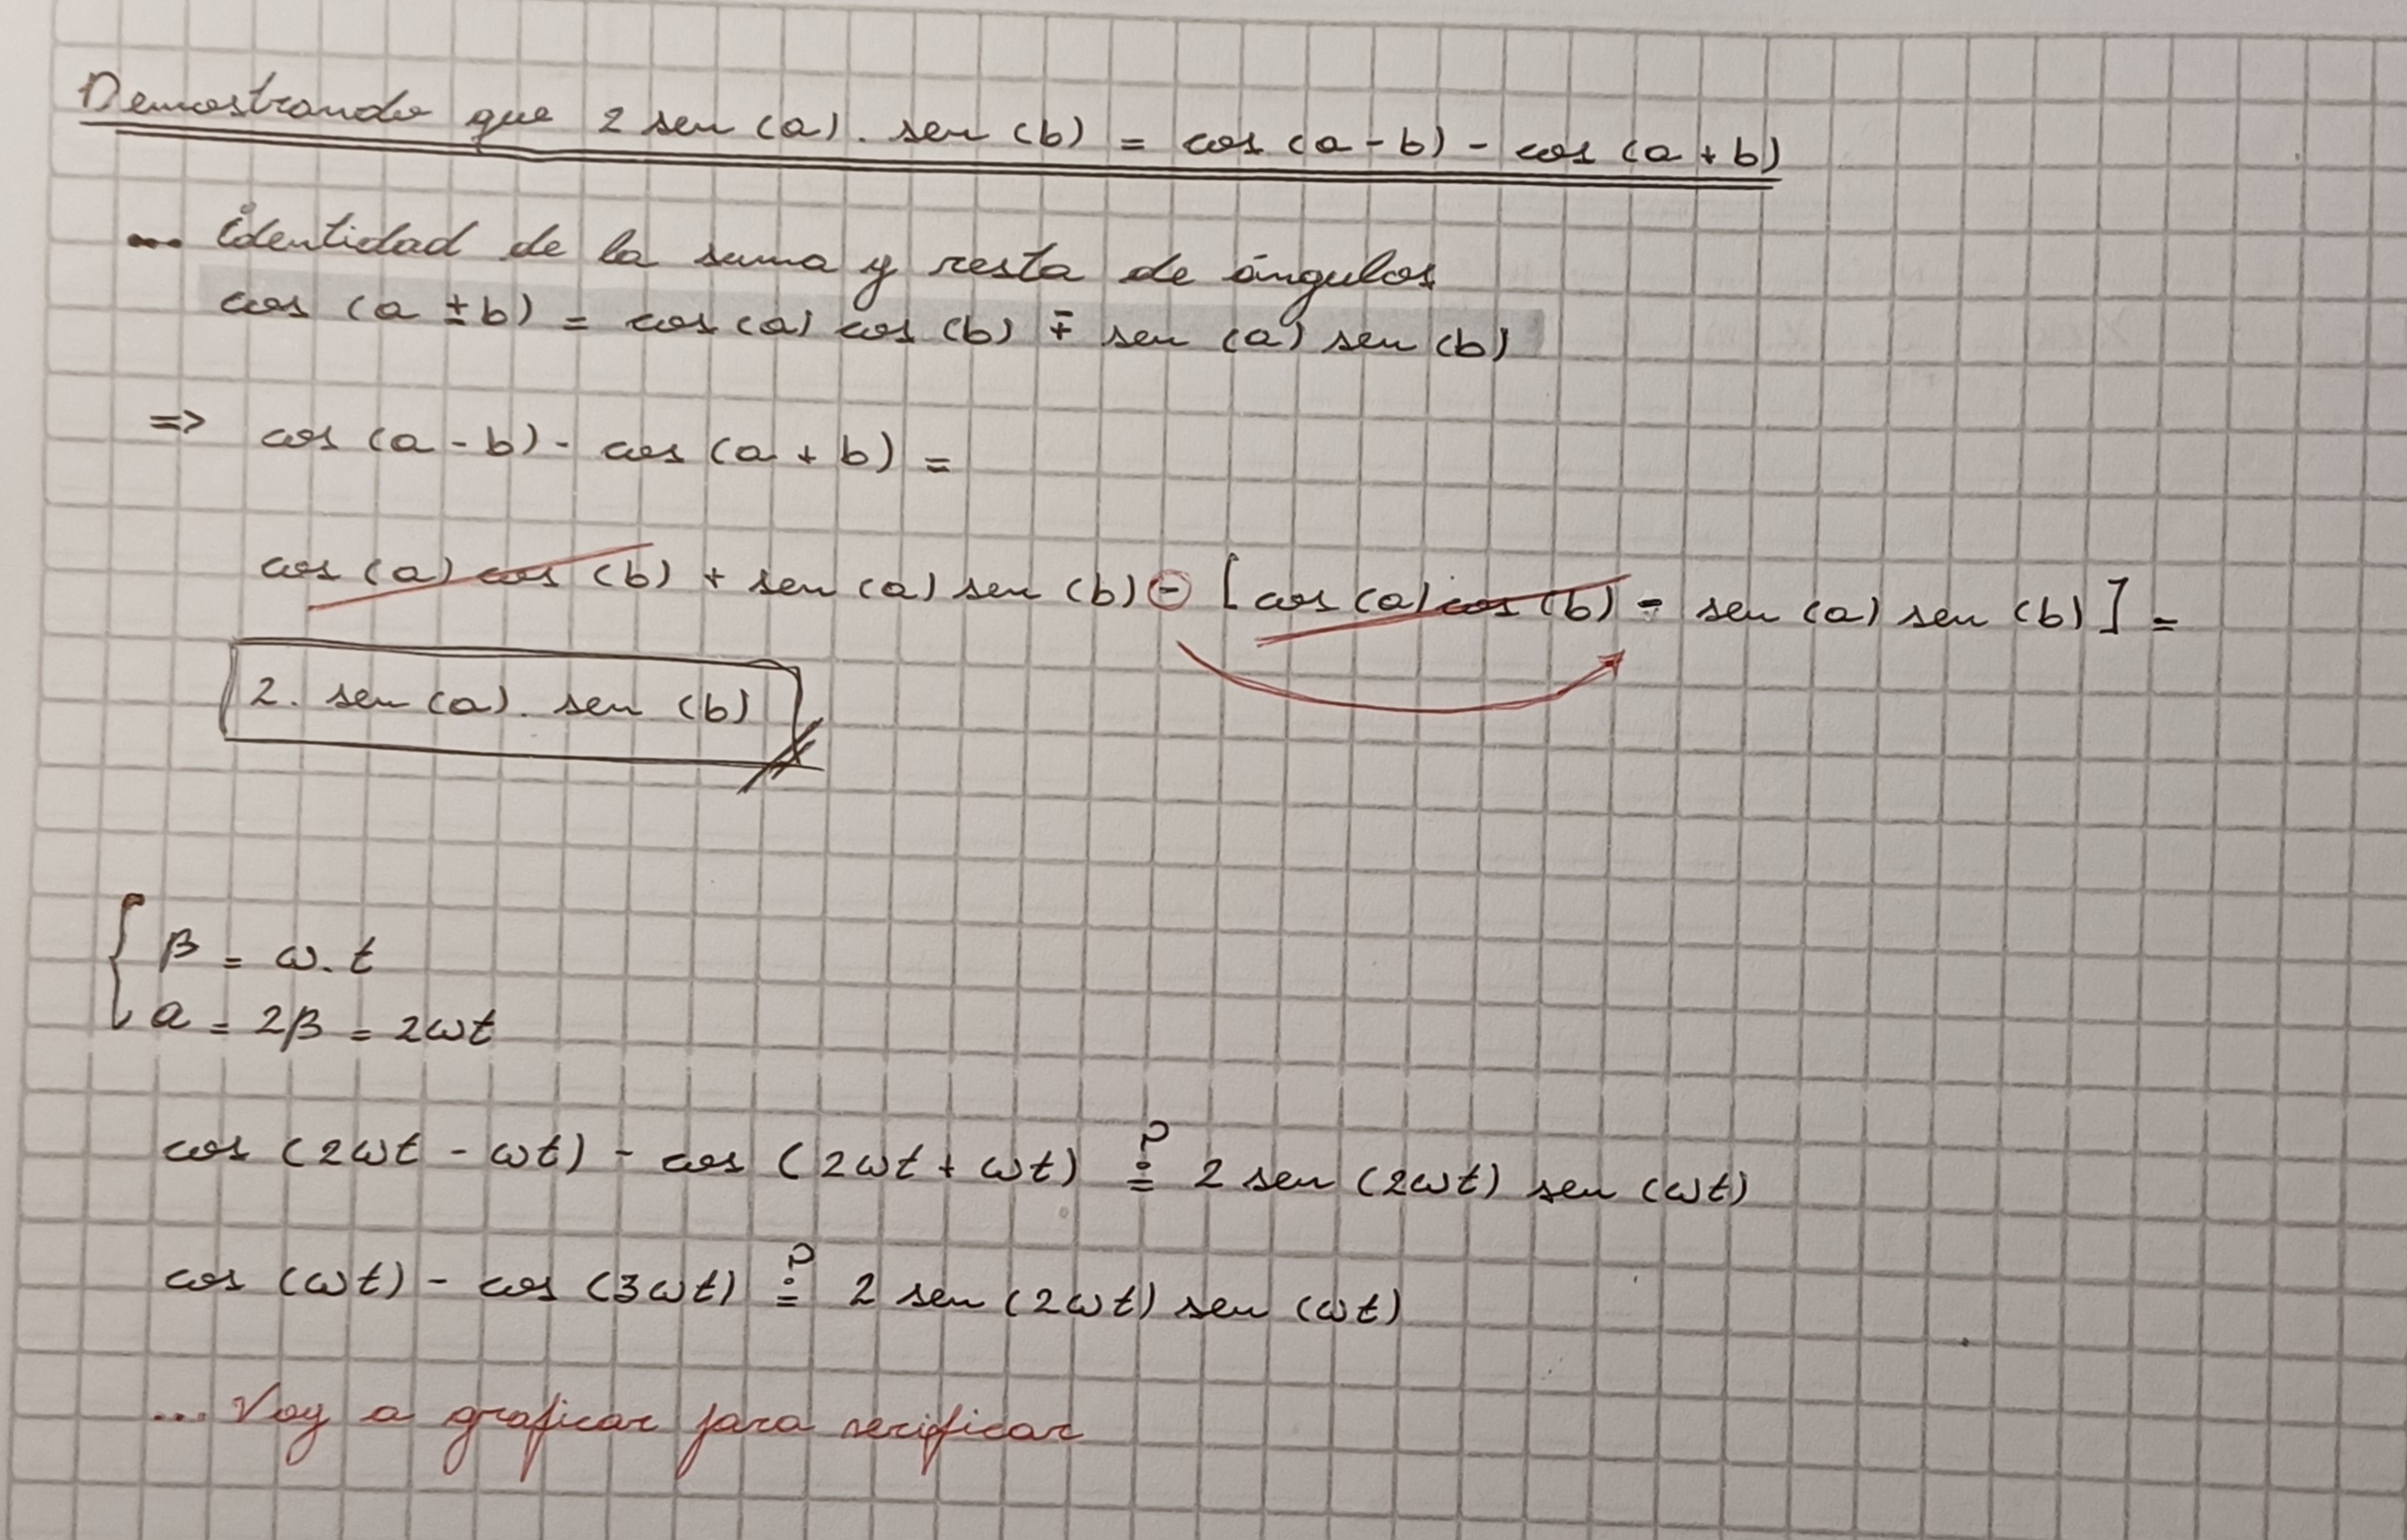 Demostrando que 2 sen (a) . sen (b) = cos (a - b) - cos (a + b)
... identidad de la suma y resta de ángulos
cos (a ± b) = cos (a) cos (b) ∓ sen (a) sen (b)
=> cos (a - b) - cos (a + b) =
cos (a) cos (b) + sen (a) sen (b) - [cos (a) cos (b) - sen (a) sen (b)] =
2. sen (a) . sen (b)
β = ω.t
a = 2β = 2ωt
cos (2ωt - ωt) - cos (2ωt + ωt) ≟ 2 sen (2ωt) sen (ωt)
cos (ωt) - cos (3ωt) ≟ 2 sen (2ωt) sen (ωt)
... Voy a graficar para verificar